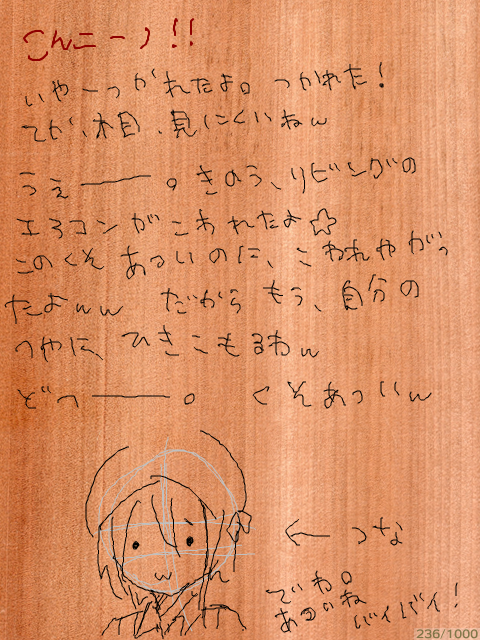 こんニーツ!!
いやーつがれたよ。つかれた!
てか、木目、見にくいねw
うぇー。きのう、リビングの
エアコンがこわれたよ☆
このくそあついのに、こわれやがっ
たよww だからもう、自分の
へやに、ひきこもるわw
どぅー。くそあついw
←つな
でわ。
あるかね
バイバイ!
236/1000